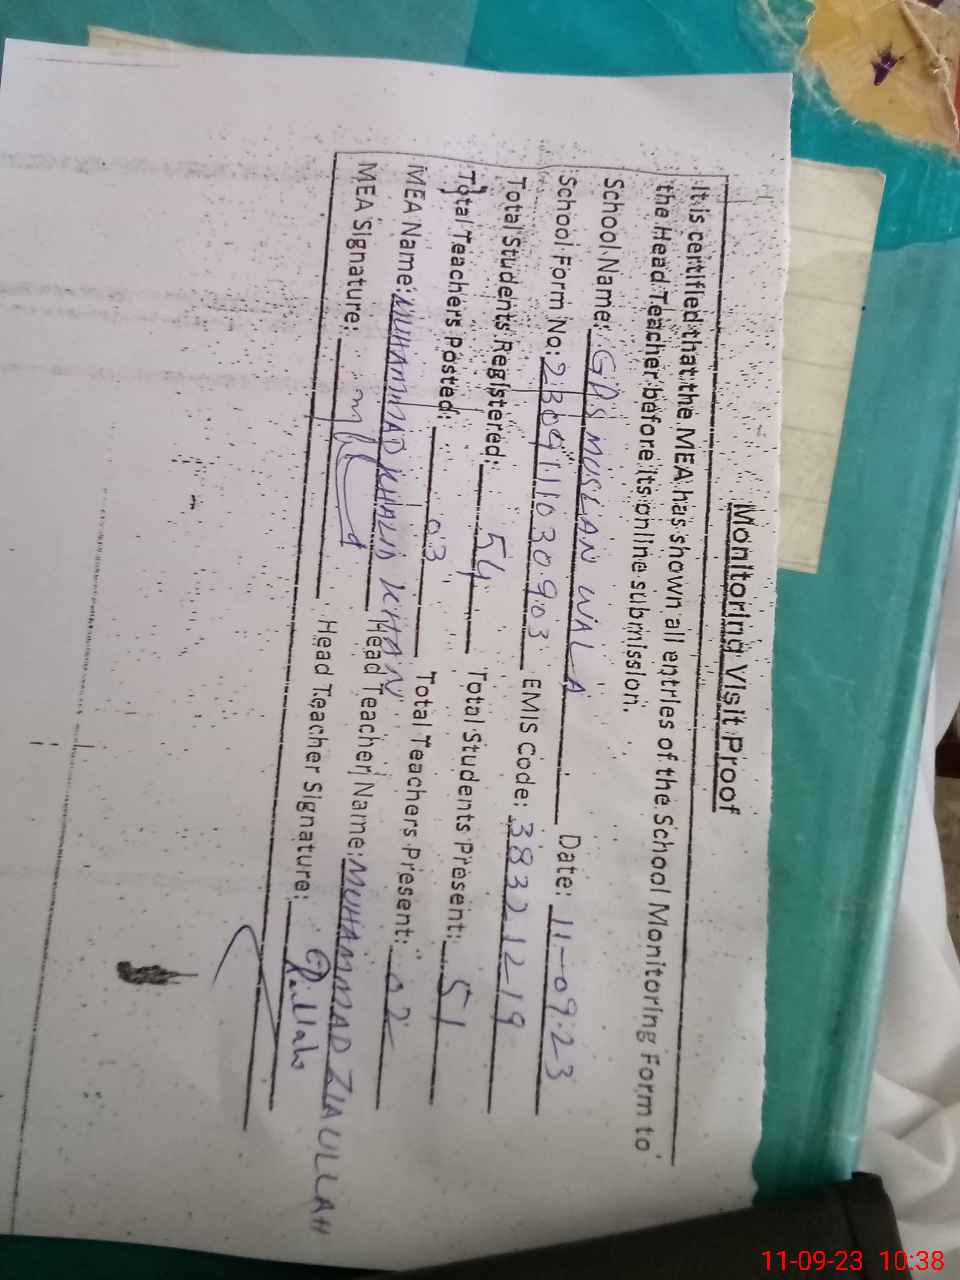 Monitoring Visit Proof
It is certified that the MEA has shown all entries of the School Monitoring Form to
the Head Teacher before its online submission.
School Name: GPS MUSLAN WALA Date: 11-09-23
School Form No: 2309111030903 EMIS Code: 38321219
Total Students Registered: 54 Total Students Present: 51
Total Teachers Posted: 03 Total Teachers Present: 02
MEA Name: MUHAMMAD KHALID KHAN Head Teacher Name: MUHAMMAD ZIAULLAH
MEA Signature: Head Teacher Signature:
11-09-23 10:38